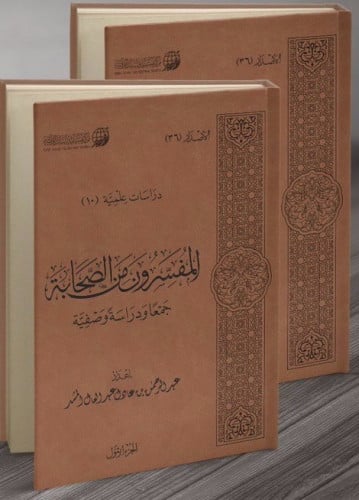 الإصدار (٣٦)
الإصدار (٣٦)
دراسات علمية (١٠)
المفسرون من الصحابة
جمعًا ودراسة وصفية
إعداد
عبد الرحمن بن عادل عبد العال المشد
الجزء الأول